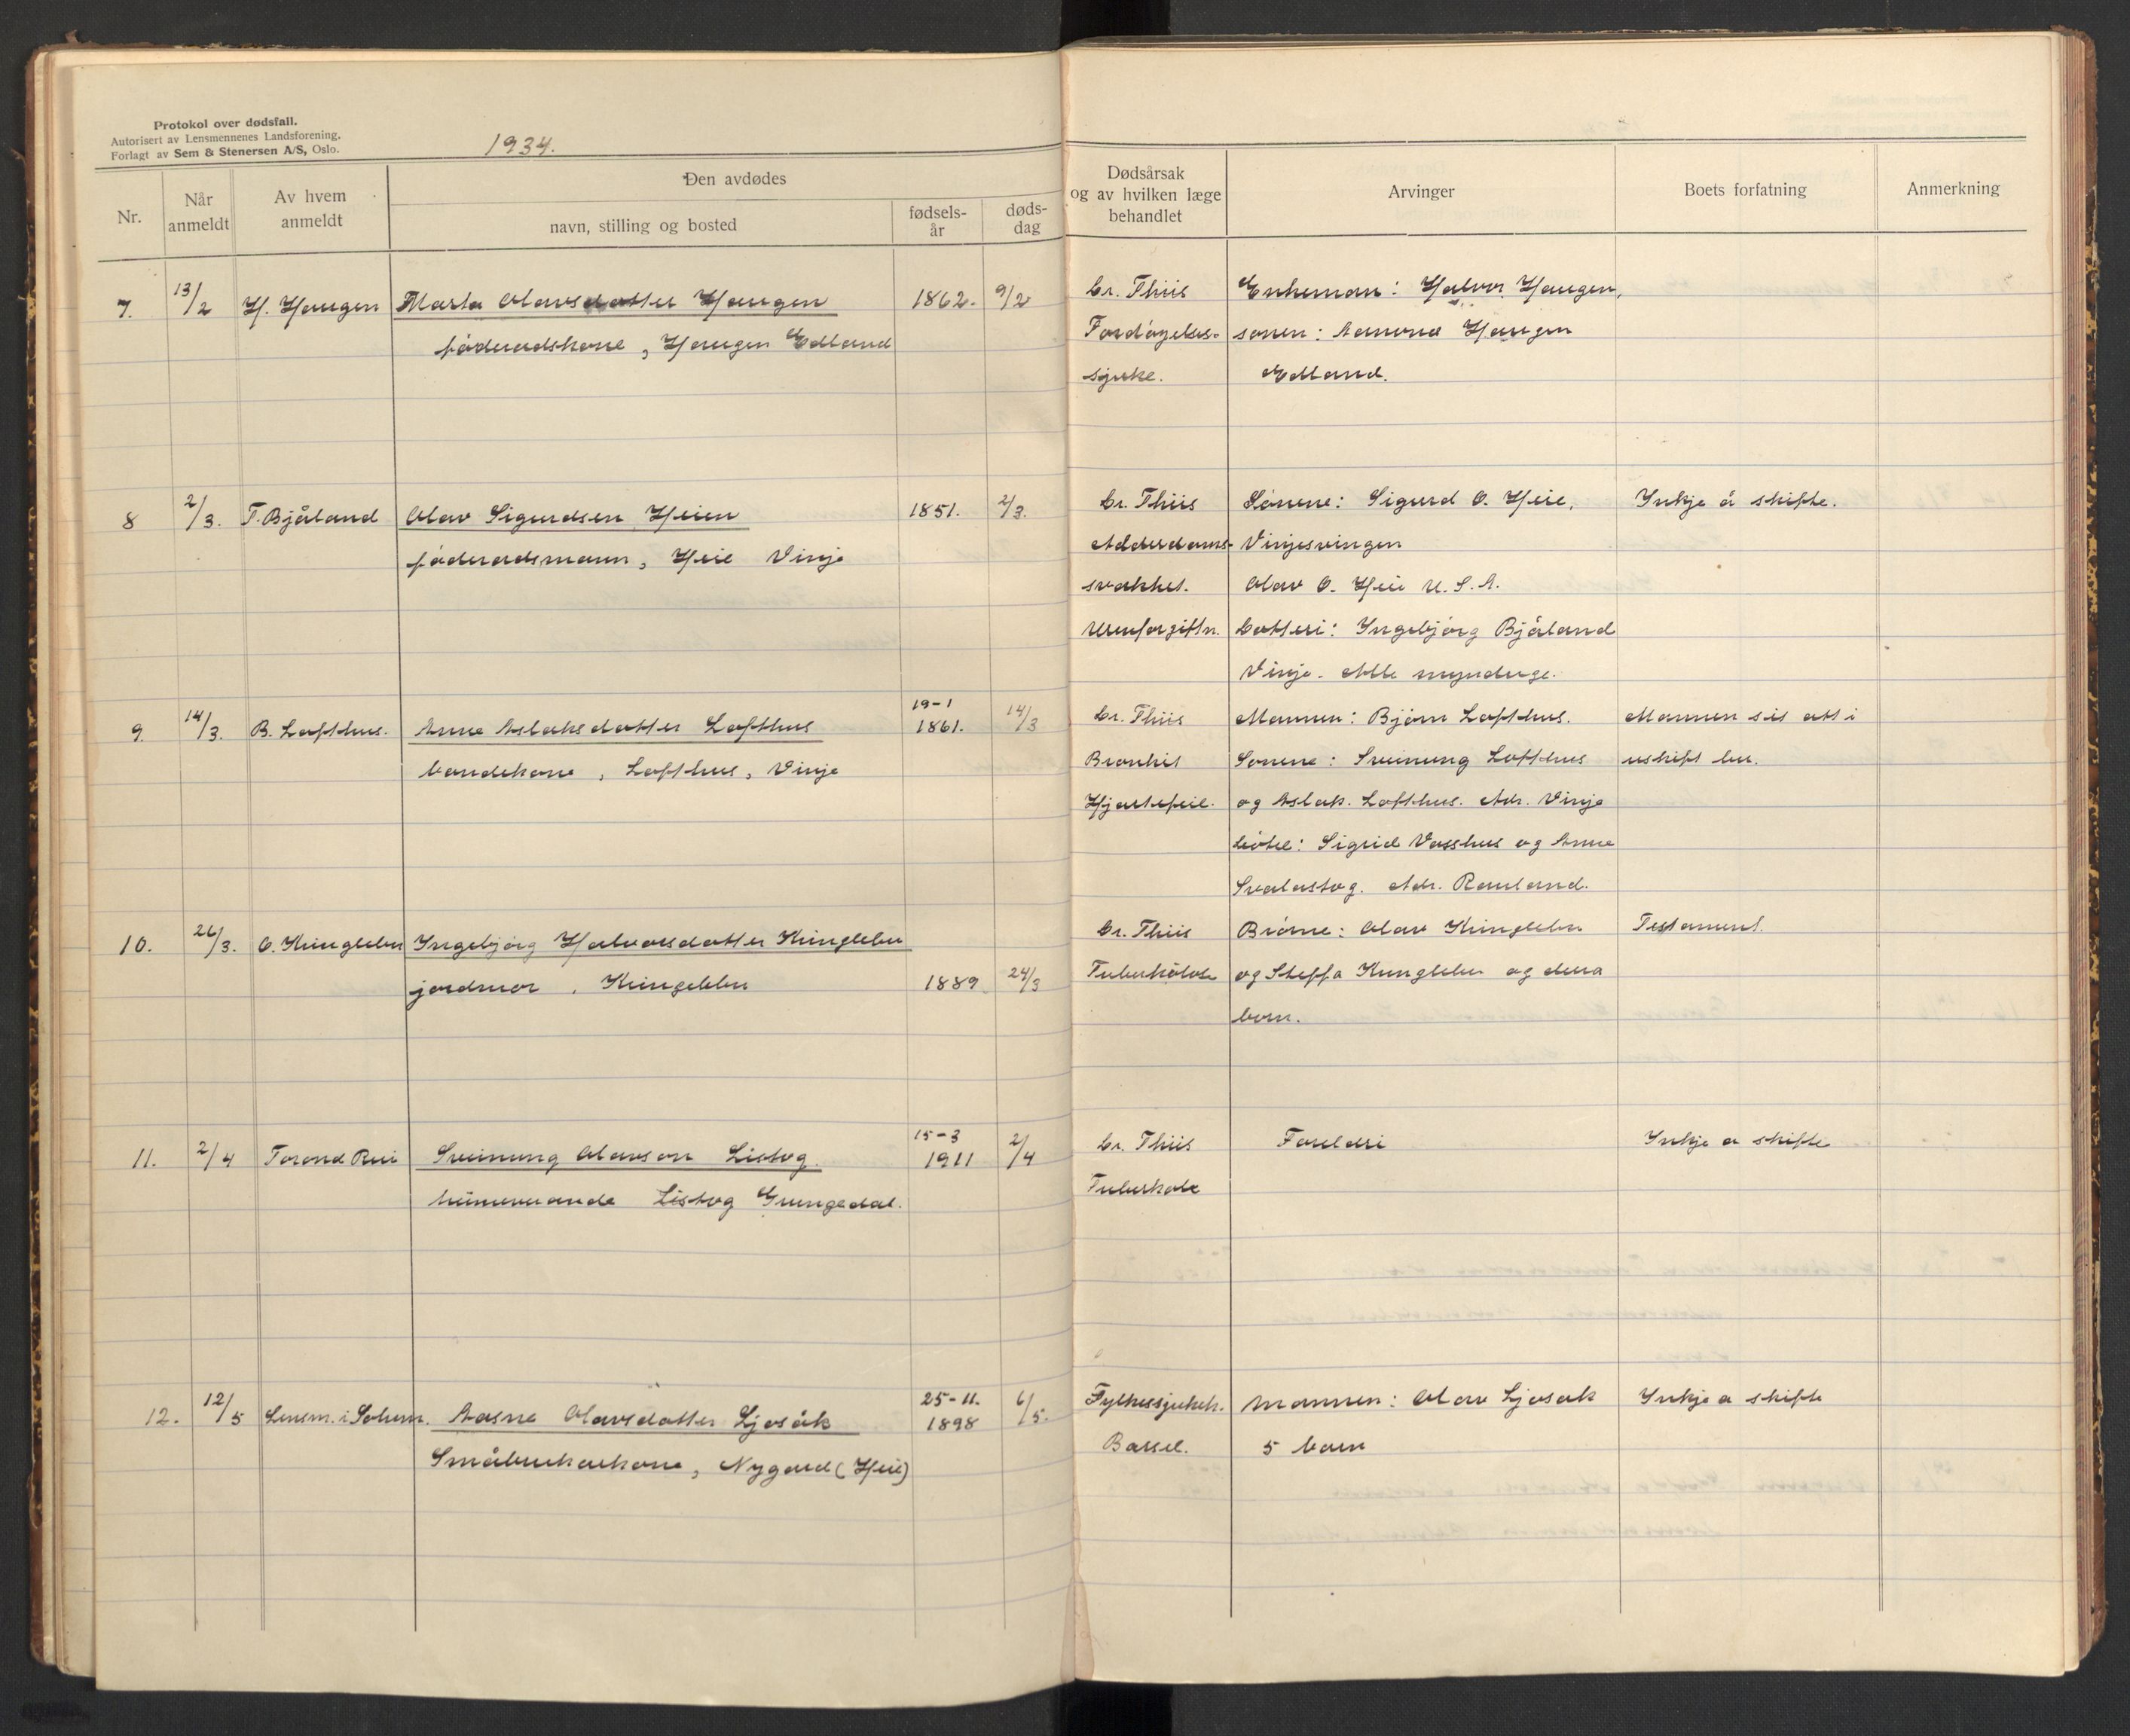 Protokol over dødsfall.
Autorisert av Lensmennenes Landsforening.
Forlagt av Sem & Stenersen A/S, Oslo.
1934.
Nr.
Når anmeldt
Av hvem anmeldt
Den avdødes
navn, stilling og bosted
fødselsår
dødsdag
Dødsårsak
og av hvilken læge
behandlet
Arvinger
Boets forfatning
Anmerkning
7. 13/2 H. Haugen Marta Olavsdotter Haugen 1862. 9/2 Dr. Thiis Enkeman: Halvor Haugen,
føderådskone, Haugen Edland Fordøyelses- sonen: Aamund Haugen
sjuke. Edland.
8 2/3. T. Bjåland Olav Sigurdsen Heien 1851. 2/3. Dr. Thiis Sønene: Sigurd O. Heie, Inkje å skifte.
føderådsmann, Heie Vinje Alderdoms- Vinjesvingen
svakhet. Olav O. Heie U.S.A.
Urinforgiftn. Dotteri: Ingebjørg Bjåland
Vinje. Alle mynduge.
9. 14/3. B. Lofthus. Anne Aslaksdotter Lofthus 19-1 1861. 14/3 Dr. Thiis Mannen: Bjørn Lofthus. Mannen sit att i
bondekone, Lofthus, Vinje Bronkit Sonene: Sveinung Lofthus uskift bu.
Hjartefeil. og Aslak. Lofthus. Adr. Vinje
Døtre: Sigrid Vasshus og Anne
Svalastog. Adr. Rauland.
10. 26/3. O. Kunglebu Ingebjørg Halvorsdotter Kunglebu Dr. Thiis Brørne: Olav Kunglebu Testament.
jordmor, Kunglebu 1889 24/3 Tuberkulose og Steffa Kunglebu og dera
born.
11. 2/4 Torond Rui Sveinung Olavson Listog. 15-3 1911 2/4 Dr. Thiis Foreldri Inkje a skifte
heimeverande Listog Grungedal. Tuberkulose
12. 12/5 Lensm. i Solum. Aasne Olavsdotter Ljosåk 25-11. 1898 6/5. Fylkessjukeh. Mannen: Olav Ljosåk Inkje a skifte
Småbrukarkone, Nygard (Heie) Barsel. 5 born